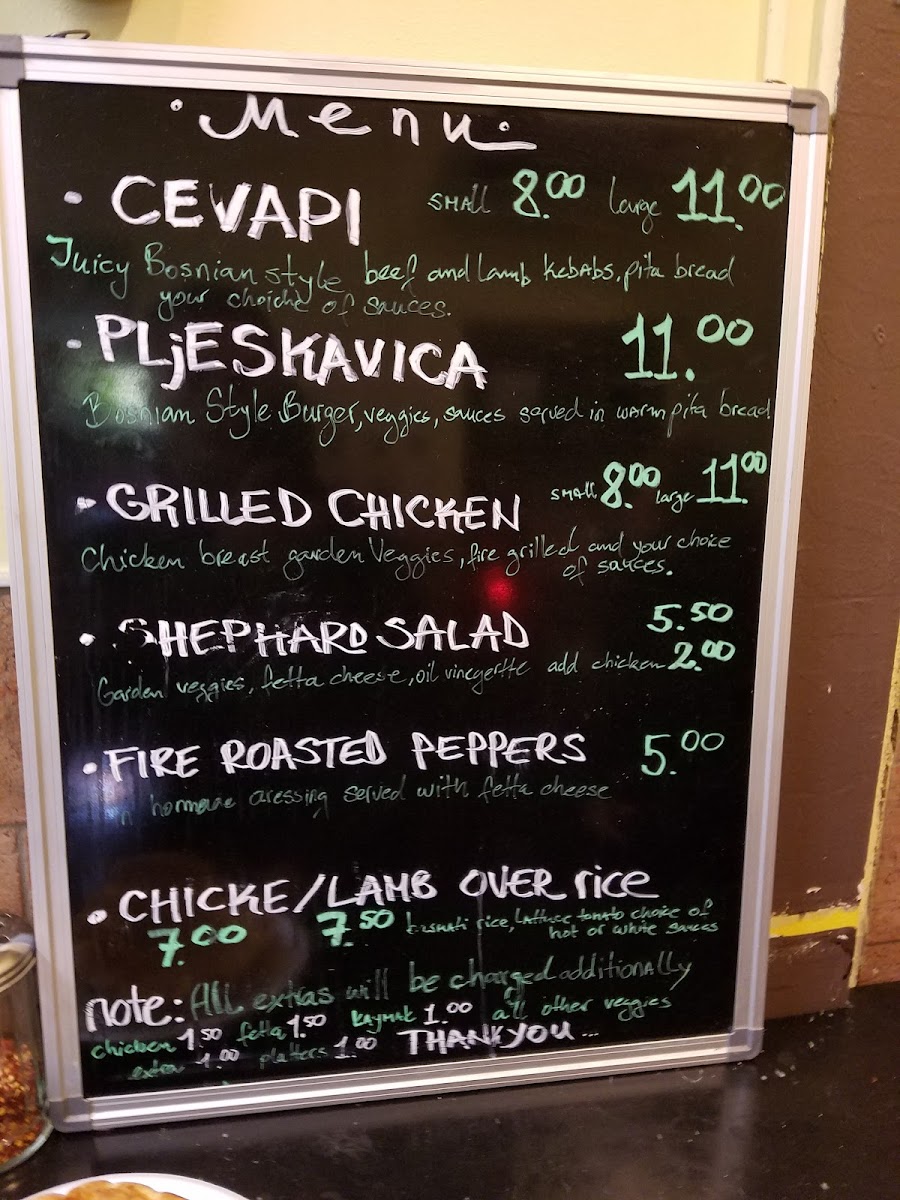 • Menu •
• CEVAPI small 8.00 large 11.00
Juicy Bosnian style beef and lamb kebabs, pita bread
your choiche of sauces.
- PLjESKAVICA 11.00
Bosnian Style Burger, veggies, sauces served in warm pita bread
• GRILLED CHICKEN small 8.00 large 11.00
Chicken breast garden Veggies, fire grilled and your choice
of sauces.
• SHEPHARD SALAD 5.50
Garden veggies, fetta cheese, oil add chicken 2.00
• FIRE ROASTED PEPPERS 5.00
served with fetta cheese
• CHICKE/LAMB OVER rice
7.00 7.50 basmati rice, lattuce tomato choice of
hot or white sauces
note: All extras will be charged additionally
chicken 1.50 fetta 1.50 KAYMAK 1.00 all other veggies
extra 1.00 platters 1.00 THANK YOU ...